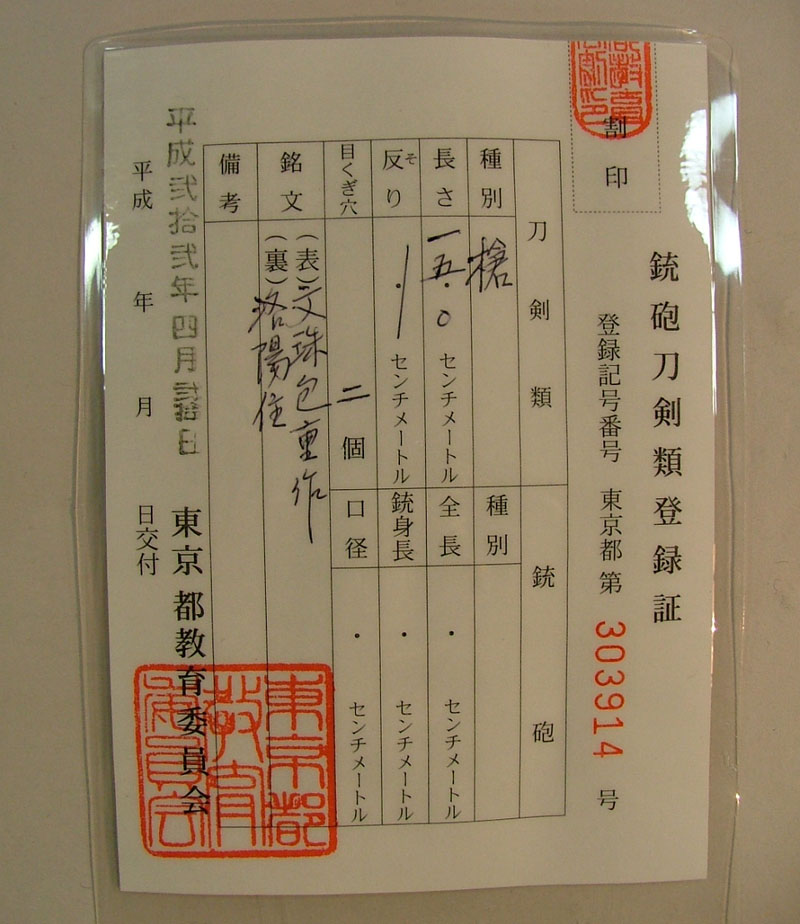 割印
銃砲刀剣類登録証
登録記号番号 東京都 第 303914 号
刀剣類
銃砲
種別 槍
種別
長さ 一五.〇 センチメートル
全長 ・ センチメートル
反り そ ・ センチメートル
銃身長 ・ センチメートル
目くぎ穴 二個
口径 ・ センチメートル
銘文
(表)文珠包重作
(裏)洛陽住
備考
平成弐拾弐年四月 日
平成 年 月 日交付
東京都教育委員会
東京都教育委員会